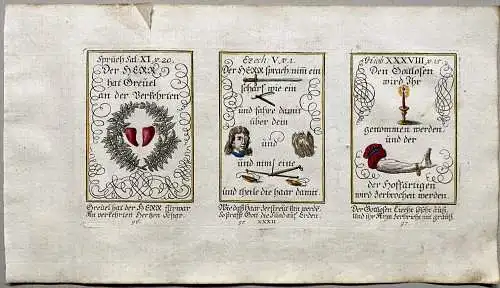 Sprüch Sal. XI. v. 20.
Der HERR
hat Greüel
an der Verkehrten
Greüel hat der HERR fürwar
An verkehrten Hertzen
Ezech. V. v. 1.
Der HERR sprach nim ein
scharf wie ein
und fahre damit
über dein
und
und nim eine
und theile die haar damit.
Wie diß haar zerstreüt
So strafft Gott die Sünd auf Erden.
XXXII
Hiob XXXVIII. v. 15
Den Gottlosen
wird Ihr
genommen werden
und der
der Hoffärtigen
wird zerbrochen werden.
Der Gottlosen
und ihr Arm zerbricht mit